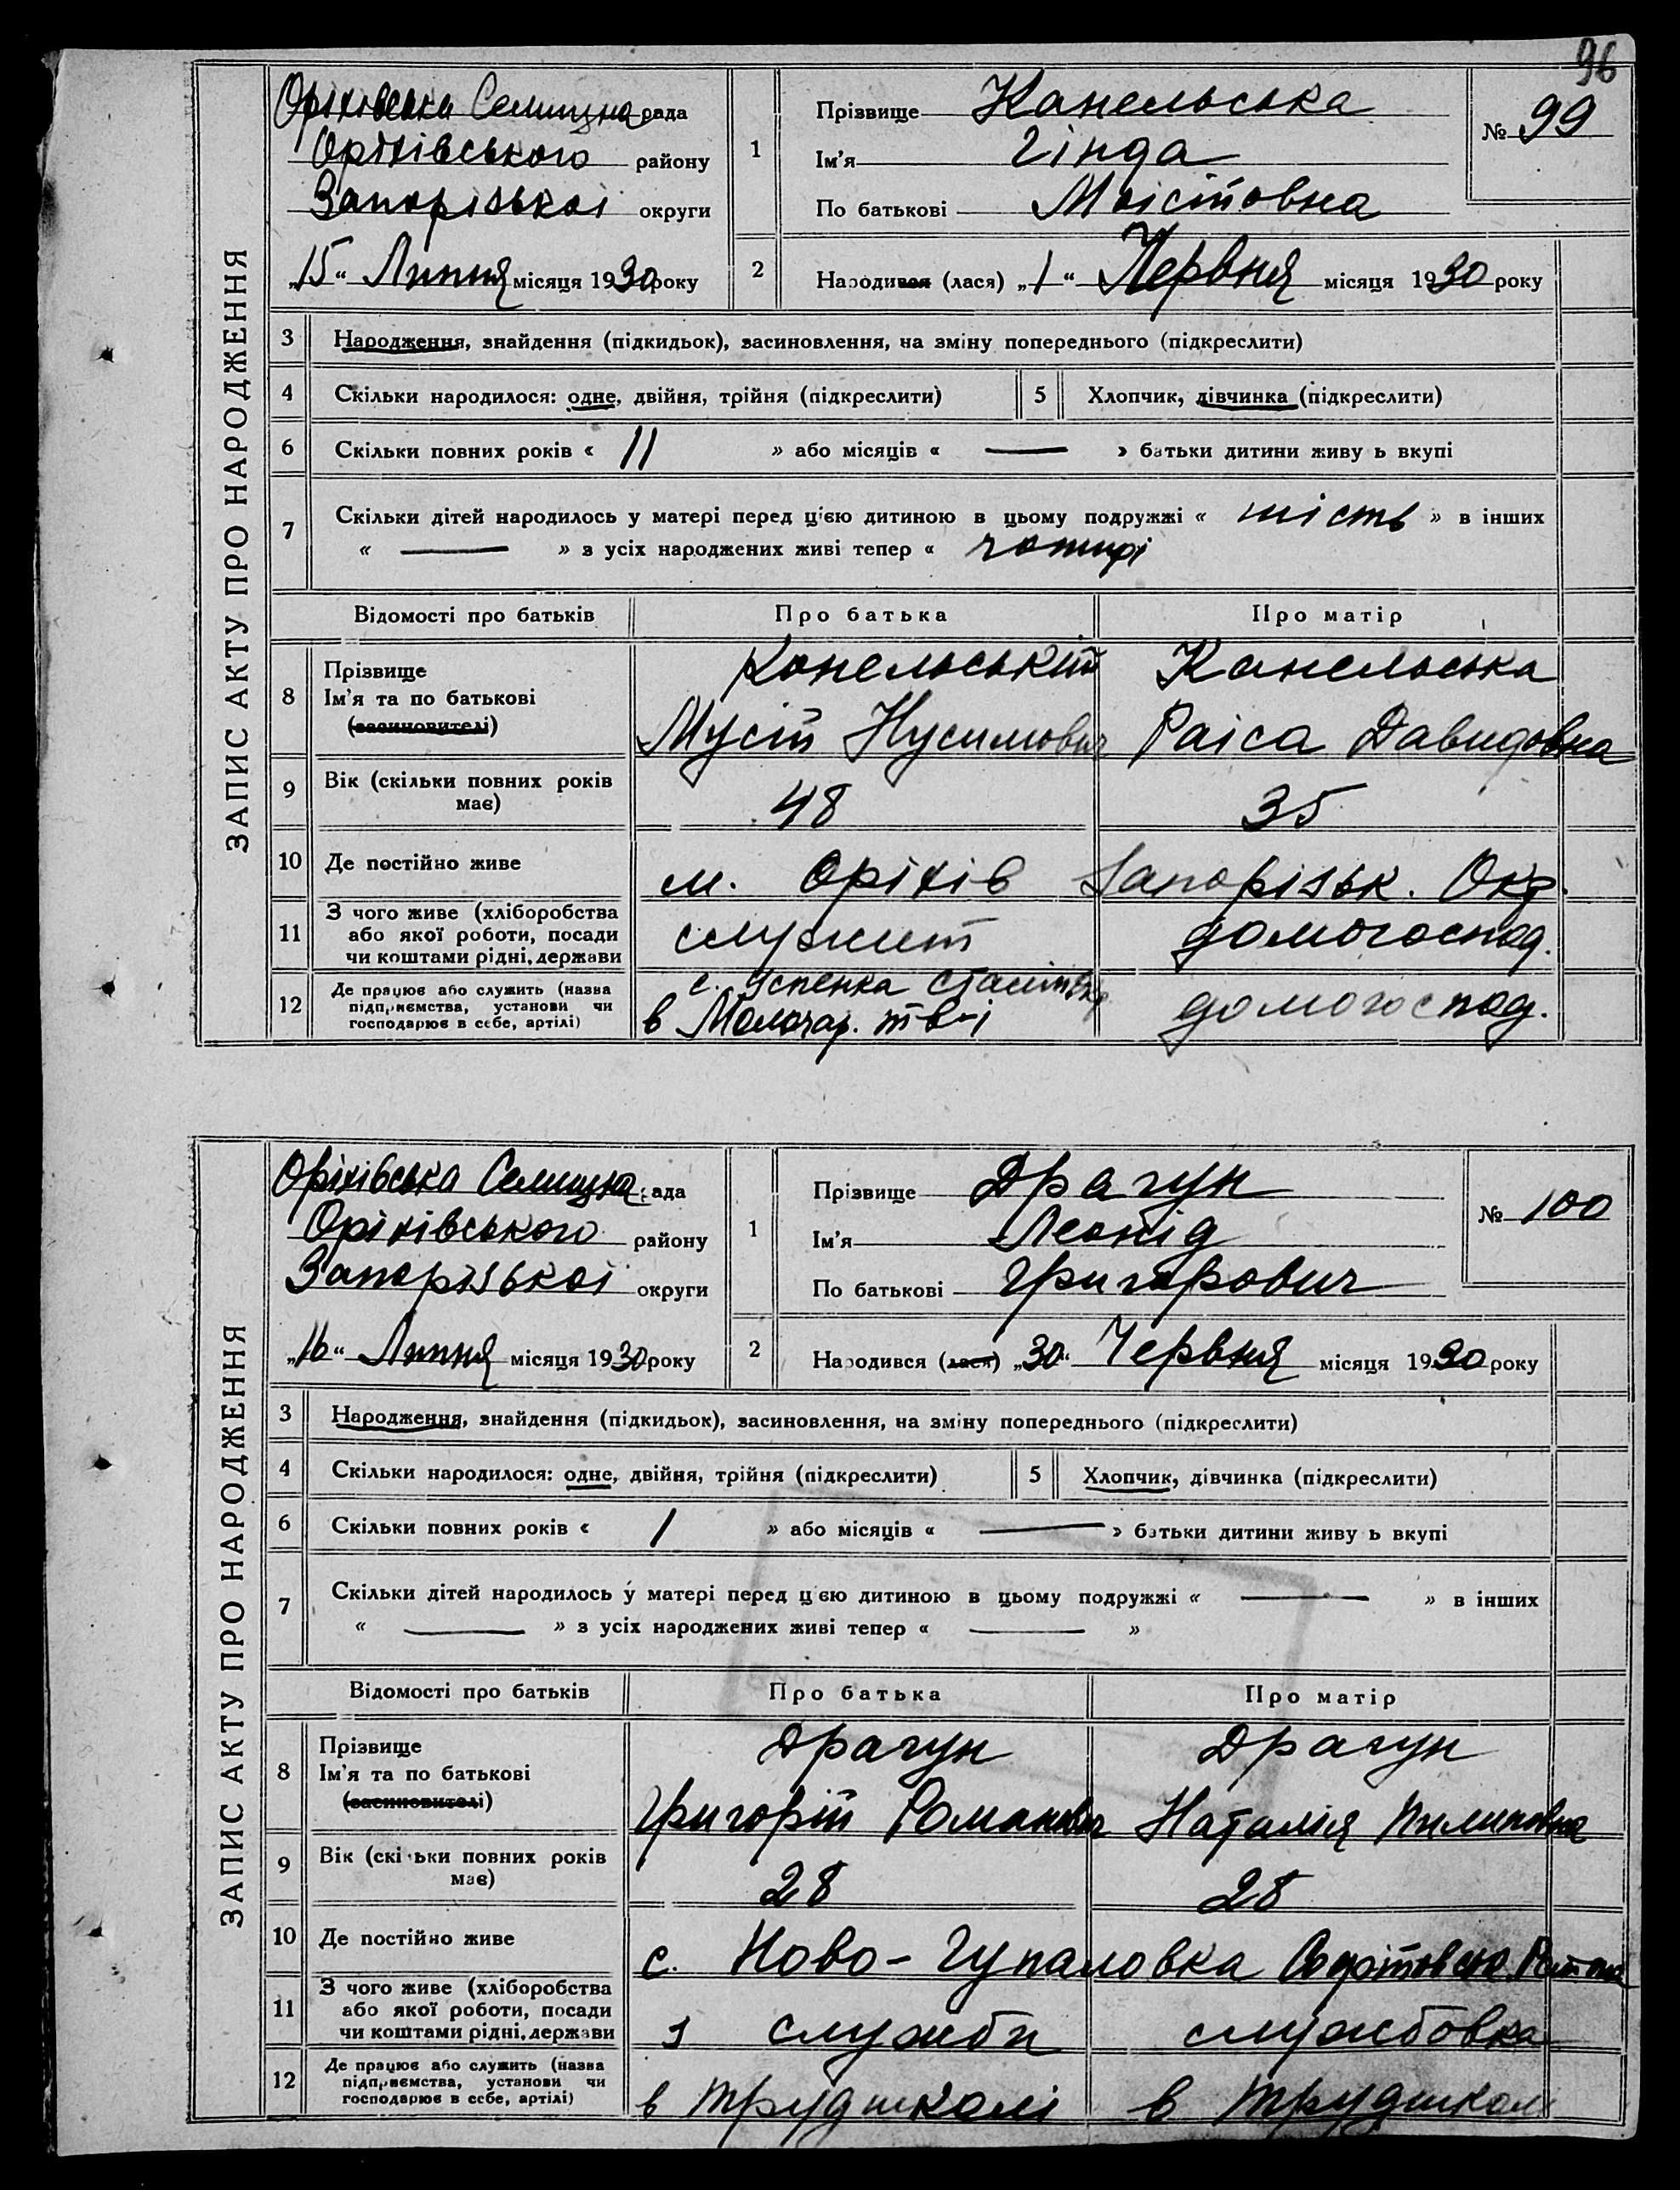 96
ЗАПИС АКТУ ПРО НАРОДЖЕННЯ
Оріхівська Селищна рада
Оріхівського району
Запорізької округи
„15“ Липня місяця 1930 року
1
Прізвище Канельська
Ім'я Гінда
По батькові Моісіїовна
№ 99
2
Народився (лася) „1“ Червня місяця 1930 року
3 Народження, знайдення (підкидьок), засиновлення, на зміну попереднього (підкреслити)
4 Скільки народилося: одне, двійня, трійня (підкреслити) 5 Хлопчик, дівчинка (підкреслити)
6 Скільки повних років « 11 » або місяців « — » батьки дитини живу ь вкупі
7 Скільки дітей народилось у матері перед цією дитиною в цьому подружжі « шість » в інших
« — » з усіх народжених живі тепер « чотирі
Відомості про батьків Про батька Про матір
8 Прізвище Канельський Канельська
Ім'я та по батькові
(засиновителі) Мусій Нусимович Раіса Давидовна
9 Вік (скільки повних років має) 48 35
10 Де постійно живе м. Оріхів Запорізьк. Окр.
11 З чого живе (хліборобства
або якої роботи, посади
чи коштами рідні, держави служит домогоспод.
12 Де працює або служить (назва
підприємства, установи чи
господарює в себе, артілі) с. Успенка
в Молочар. т-ві домогоспод.
ЗАПИС АКТУ ПРО НАРОДЖЕННЯ
Оріхівська Селищна рада
Оріхівського району
Запорізької округи
„16“ Липня місяця 1930 року
1
Прізвище Драгун
Ім'я Леонід
По батькові Григорович
№ 100
2
Народився (лася) „30“ Червня місяця 1930 року
3 Народження, знайдення (підкидьок), засиновлення, на зміну попереднього (підкреслити)
4 Скільки народилося: одне, двійня, трійня (підкреслити) 5 Хлопчик, дівчинка (підкреслити)
6 Скільки повних років « 1 » або місяців « — » батьки дитини живу ь вкупі
7 Скільки дітей народилось у матері перед цією дитиною в цьому подружжі « — » в інших
« — » з усіх народжених живі тепер « — »
Відомості про батьків Про батька Про матір
8 Прізвище Драгун Драгун
Ім'я та по батькові
(засиновителі) Григорій Романович Наталія Пилиповна
9 Вік (скільки повних років має) 28 28
10 Де постійно живе с. Ново-Гупаловка
11 З чого живе (хліборобства
або якої роботи, посади
чи коштами рідні, держави з служби службовка
12 Де працює або служить (назва
підприємства, установи чи
господарює в себе, артілі) в трудшколі в трудшколі